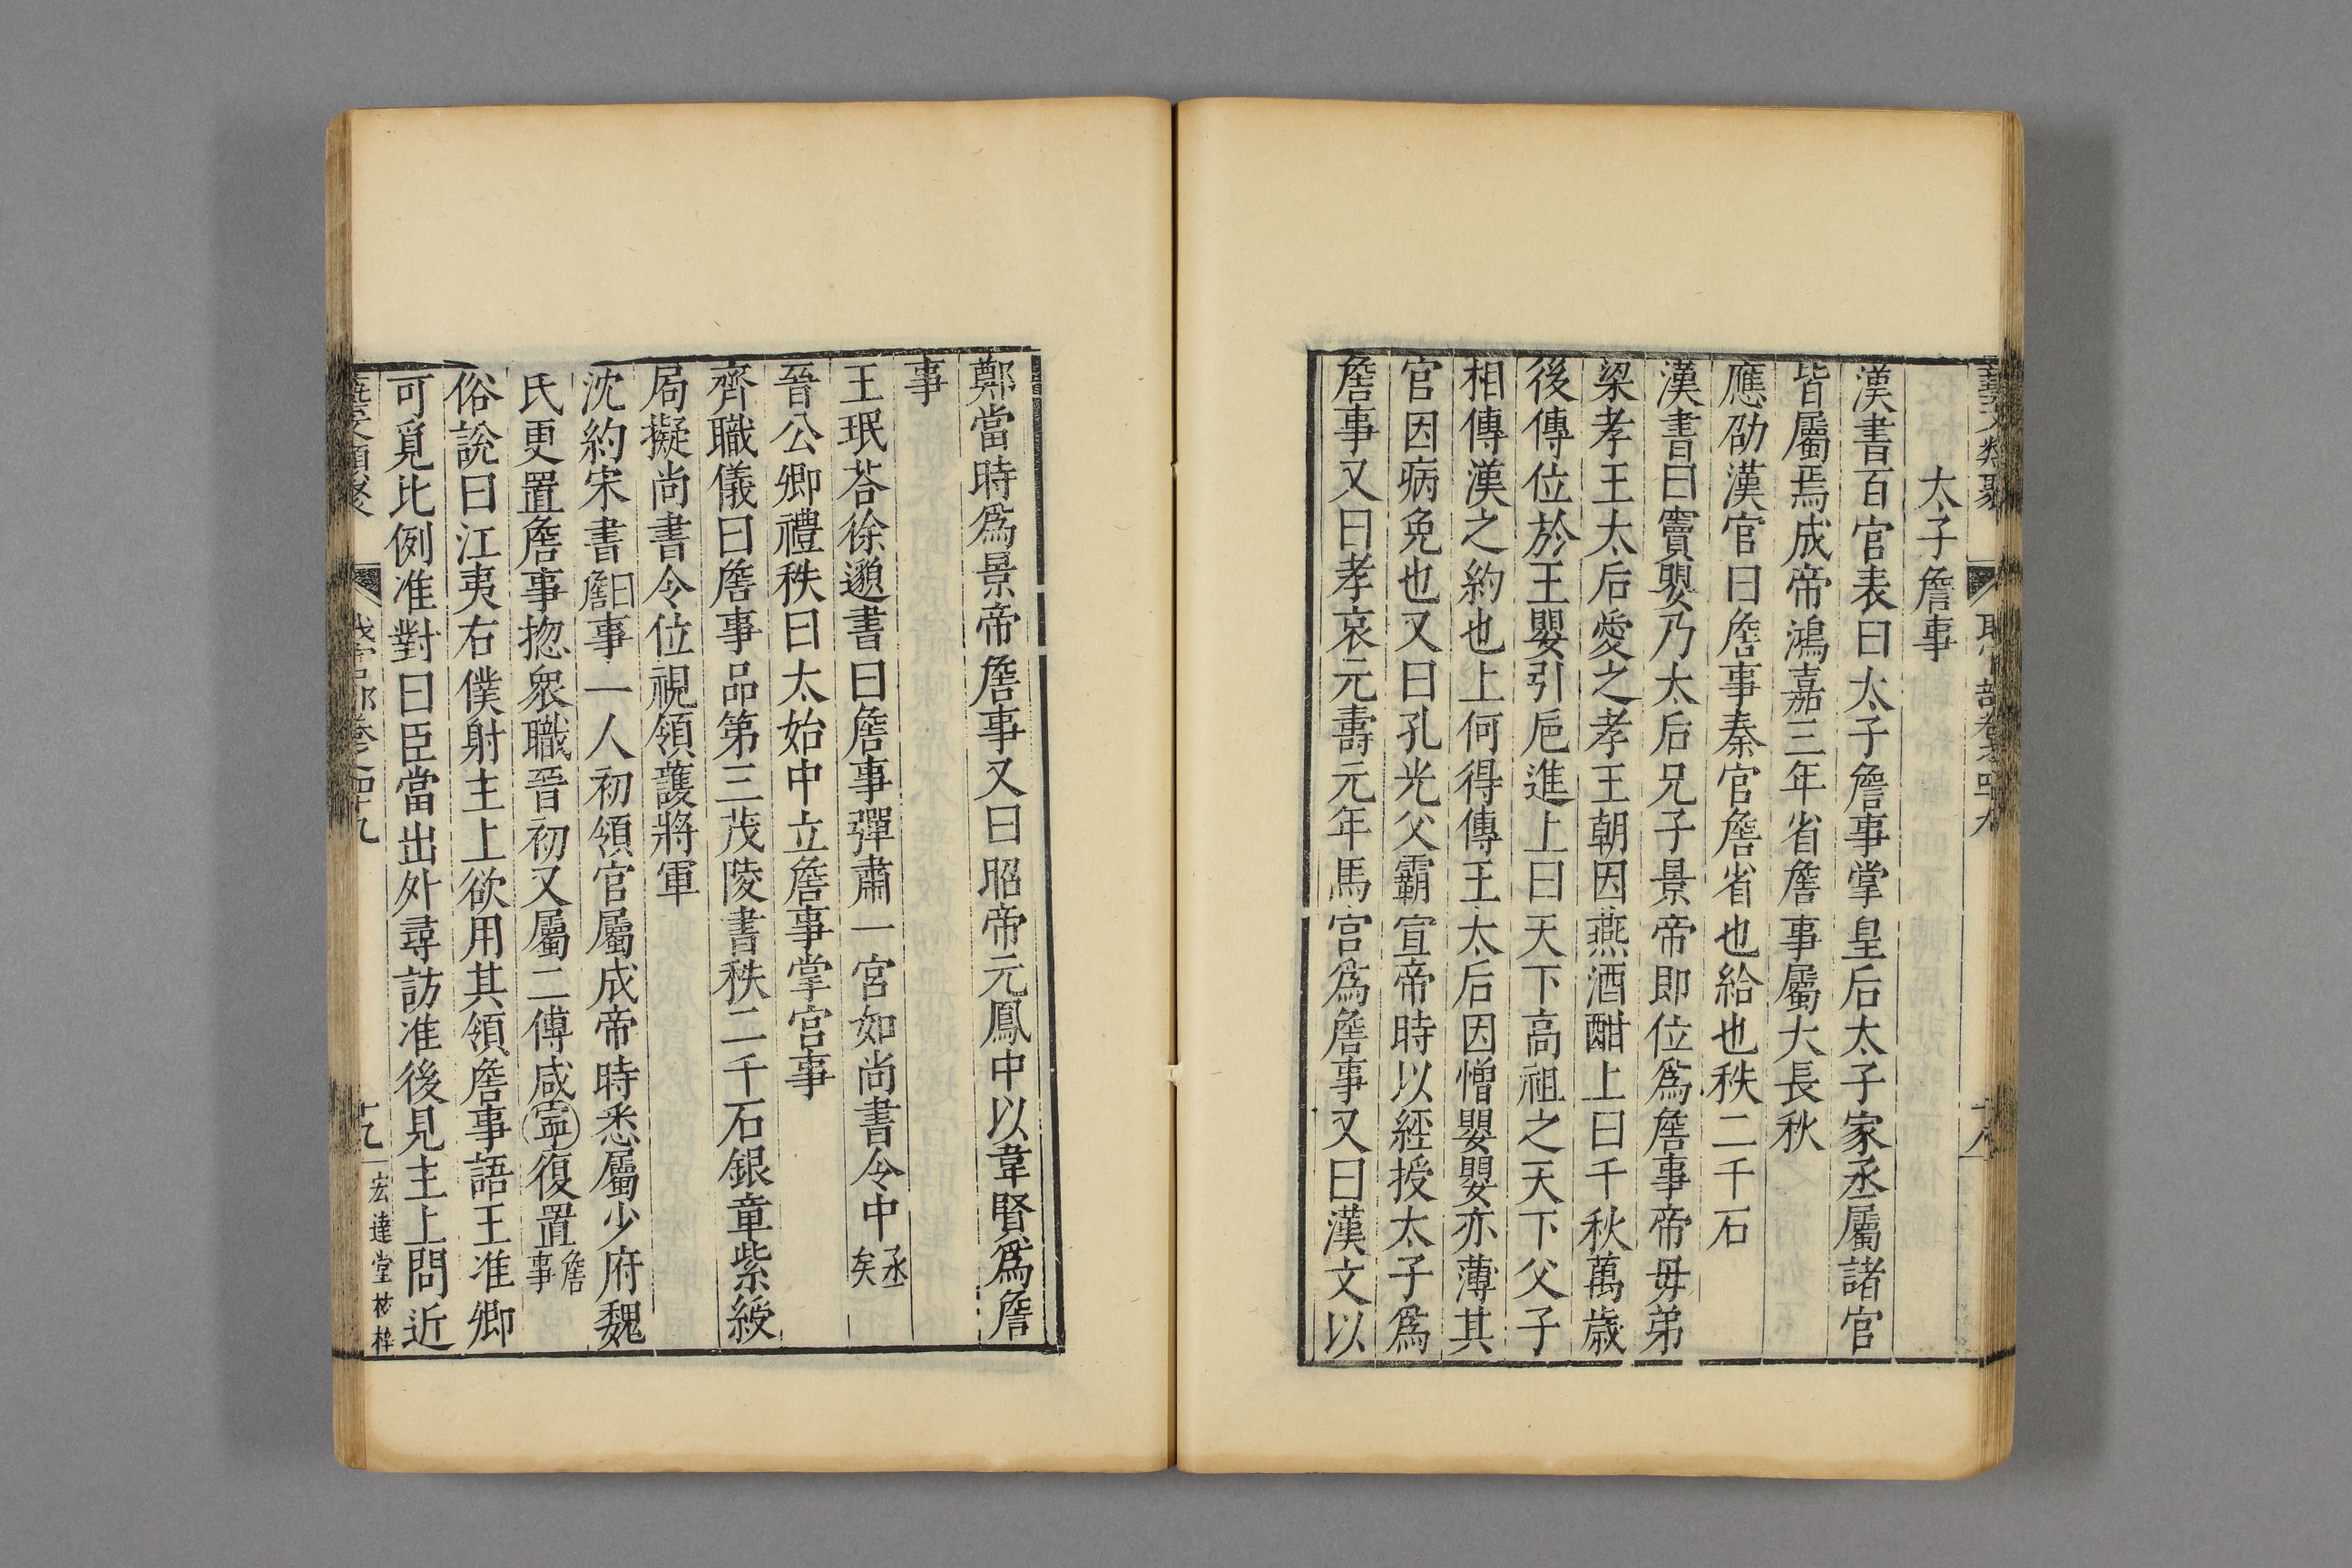 藝文類聚 職官部卷之四十九 十八
太子詹事
漢書百官表曰太子詹事掌皇后太子家丞屬諸官
皆屬焉成帝鴻嘉三年省詹事屬大長秋
應劭漢官曰詹事秦官詹省也給也秩二千石
漢書曰竇嬰乃太后兄子景帝即位爲詹事帝毋弟
梁孝王太后愛之孝王朝因燕酒酣上曰千秋萬歲
後傳位於王嬰引巵進上曰天下高祖之天下父子
相傳漢之約也上何得傳王太后因憎嬰嬰亦薄其
官因病免也又曰孔光父霸宣帝時以經授太子爲
詹事又曰孝哀元壽元年馬宮爲詹事又曰漢文以
鄭當時爲景帝詹事又曰昭帝元鳳中以韋賢爲詹
事
王珉荅徐邈書曰詹事彈肅一宮如尚書令中丞矣
晉公卿禮秩曰太始中立詹事掌宮事
齊職儀曰詹事品第三茂陵書秩二千石銀章紫綬
局擬尚書令位視領護將軍
沈約宋書曰詹事一人初領官屬成帝時悉屬少府魏
氏更置詹事揔衆職晉初又屬二傅咸寧復置詹事
俗說曰江夷右僕射主上欲用其領詹事語王准卿
可覓比例准對曰臣當出外尋訪准後見主上問近
藝文類聚 職官部卷之四十九 十九 宏達堂校梓